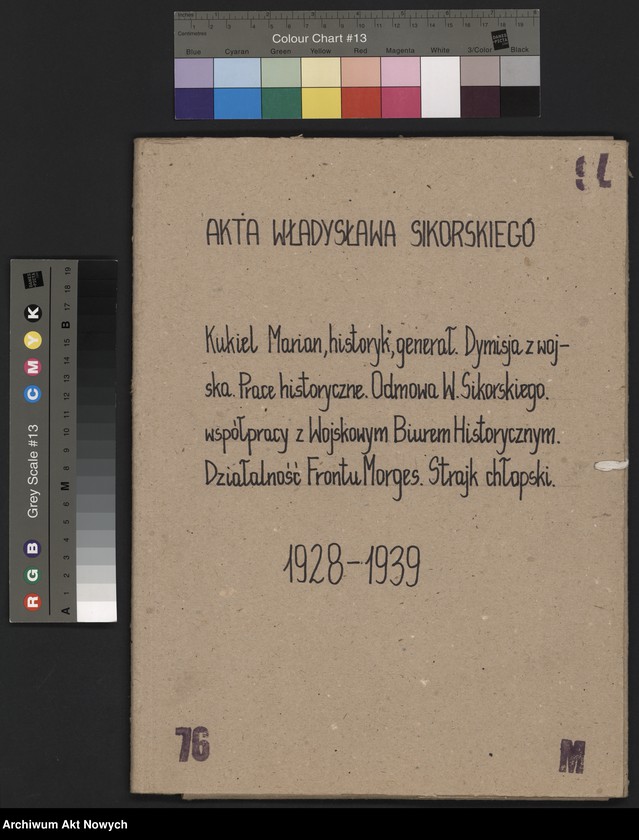 Colour Chart #13
Blue Cyaran Green Yellow Red Magenta White 3/Color Black
92
AKTA WŁADYSŁAWA SIKORSKIEGO
Kukiel Marian, historyk, generał. Dymisja z woj-
ska. Prace historyczne. Odmowa W. Sikorskiego.
współpracy z Wojskowym Biurem Historycznym.
Działalność Frontu Morges. Strajk chłopski.
1928-1939
76
M
Grey Scale #13
R G B C M Y K
A 1 2 3 4 5 6 M 8 9 10 11 12 13 14 15 B 17 18 19
Archiwum Akt Nowych